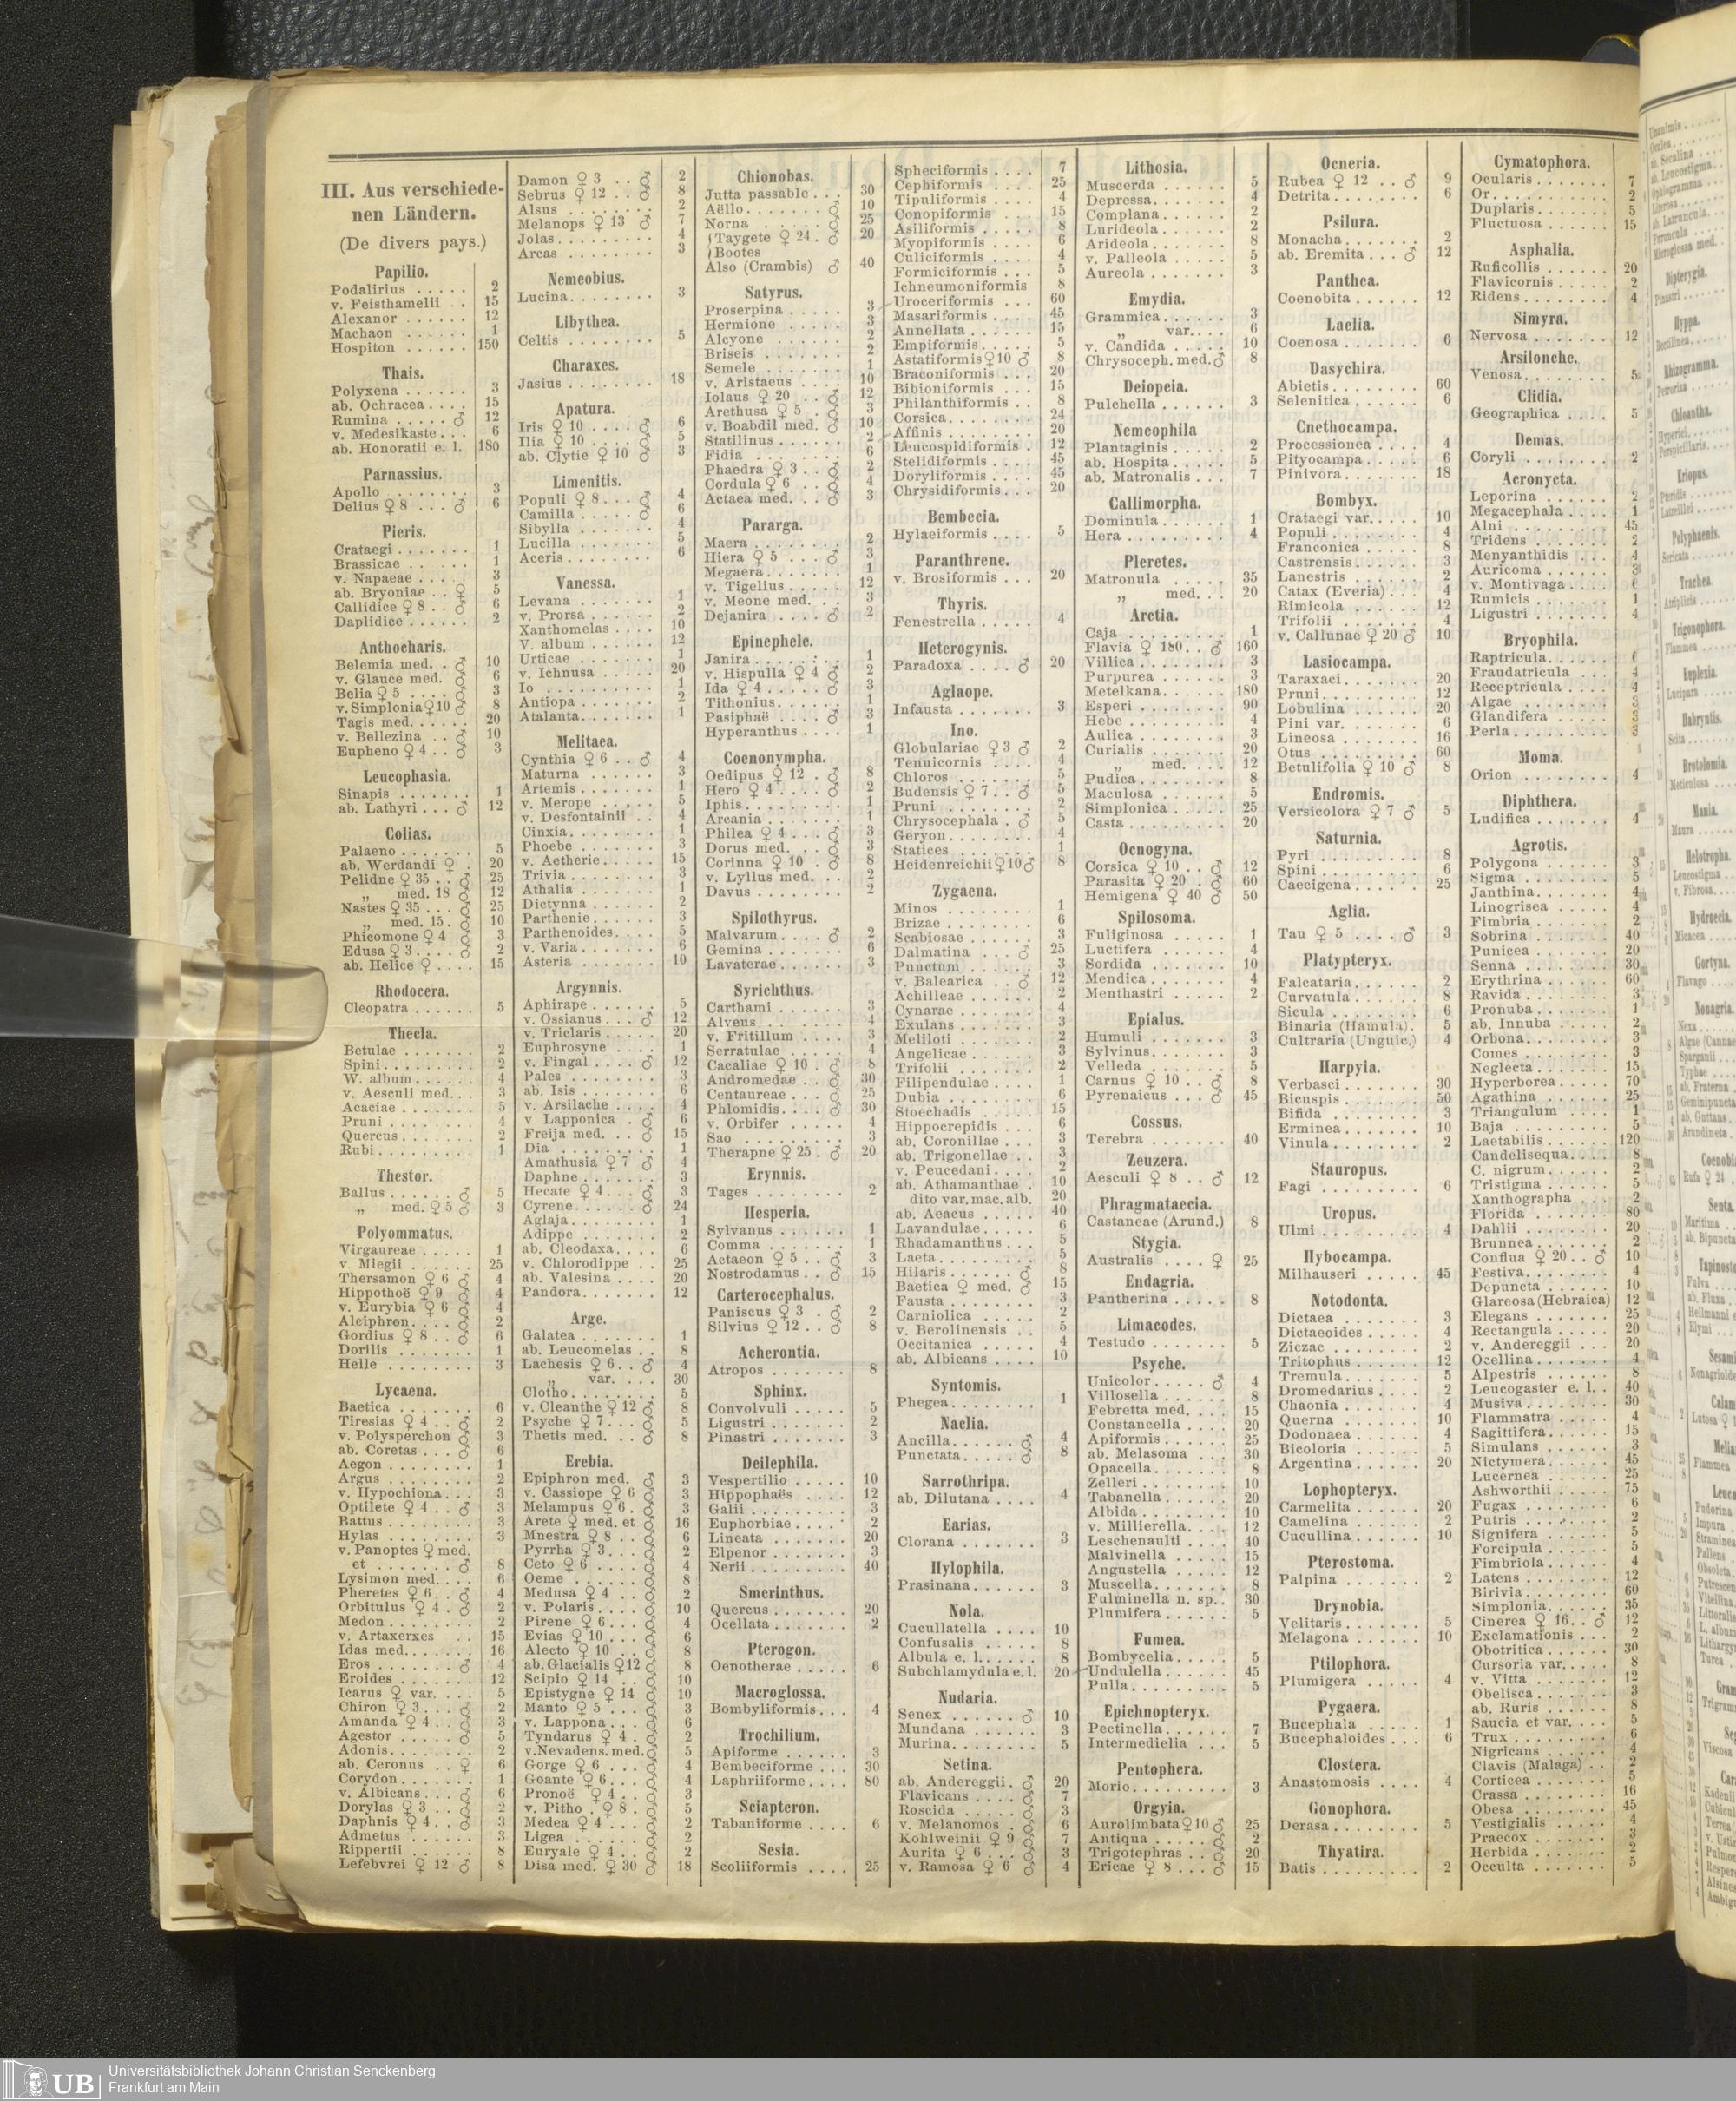 III. Aus verschiede-
nen Ländern.
(De divers pays.)
Papilio.
Podalirius ..... 2
v. Feisthamelii .. 15
Alexanor ...... 12
Machaon ...... 1
Hospiton ...... 150
Thais.
Polyxena ...... 3
ab. Ochracea .... 15
Rumina .... ♂ 12
v. Medesikaste ... 6
ab. Honoratii e. l. 180
Parnassius.
Apollo ....... 3
Delius ♀ 8 ... ♂ 6
Pieris.
Crataegi ....... 1
Brassicae ...... 1
v. Napaeae ..... 3
ab. Bryoniae .. ♀ 5
Callidice ♀ 8 .. ♂ 6
Daplidice ...... 2
Anthocharis.
Belemia med. . ♂ 10
v. Glauce med. ♂ 6
Belia ♀ 5 .... ♂ 3
v. Simplonia ♀ 10 ♂ 8
Tagis med. ..... 20
v. Bellezina .. ♂ 10
Eupheno ♀ 4 .. ♂ 3
Leucophasia.
Sinapis ....... 1
ab. Lathyri ... ♂ 12
Colias.
Palaeno ....... 5
ab. Werdandi ♀ . 20
Pelidne ♀ 35 .. ♂ 25
„ med. 18 ♂ 12
Nastes ♀ 35 ... ♂ 25
„ med. 15. ♂ 10
Phicomone ♀ 4 ♂ 3
Edusa ♀ 3 .... ♂ 2
ab. Helice ♀ .... 15
Rhodocera.
Cleopatra ...... 5
Thecla.
Betulae ....... 2
Spini ......... 2
W. album ...... 4
v. Aesculi med. .. 3
Acaciae ....... 5
Pruni ........ 4
Quercus ....... 2
Rubi ......... 1
Thestor.
Ballus ...... ♂ 5
„ med. ♀ 5 ♂ 3
Polyommatus.
Virgaureae ..... 1
v. Miegii ...... 25
Thersamon ♀ 6 ♂ 4
Hippothoë ♀ 9 ♂ 4
v. Eurybia ♀ 6 ♂ 4
Alciphron .... ♂ 2
Gordius ♀ 8 .. ♂ 6
Dorilis ....... 1
Helle ........ 3
Lycaena.
Baetica ....... 6
Tiresias ♀ 4 .. ♂ 2
v. Polysperchon ♂ 3
ab. Coretas ... ♂ 6
Aegon ........ 1
Argus ........ 2
v. Hypochiona ... 3
Optilete ♀ 4 .. ♂ 3
Battus ........ 3
Hylas ........ 3
v. Panoptes ♀ med.
et ....... ♂ 8
Lysimon med. ... 6
Pheretes ♀ 6 .. ♂ 4
Orbitulus ♀ 4 . ♂ 2
Medon ....... 2
v. Artaxerxes .. 15
Idas med. ...... 16
Eros ....... ♂ 4
Eroides ....... 12
Icarus ♀ var. ... 5
Chiron ♀ 3 ... ♂ 2
Amanda ♀ 4 .. ♂ 3
Agestor ..... ♂ 5
Adonis ........ 2
ab. Ceronus .. ♀ 6
Corydon ....... 1
v. Albicans .... ♂ 6
Dorylas ♀ 3 .. ♂ 2
Daphnis ♀ 4 .. ♂ 3
Admetus ...... 3
Rippertii ...... 8
Lefebvrei ♀ 12 ♂ 8
Damon ♀ 3 .. ♂ 2
Sebrus ♀ 12 .. ♂ 8
Alsus ........ 2
Melanops ♀ 13 ♂ 7
Jolas ......... 4
Arcas ........ 3
Nemeobius.
Lucina ........ 3
Libythea.
Celtis ........ 5
Charaxes.
Jasius ........ 18
Apatura.
Iris ♀ 10 .... ♂ 6
Ilia ♀ 10 .... ♂ 5
ab. Clytie ♀ 10 ♂ 3
Limenitis.
Populi ♀ 8 ... ♂ 4
Camilla ..... ♂ 6
Sibylla ....... 4
Lucilla ....... 5
Aceris ........ 6
Vanessa.
Levana ....... 1
v. Prorsa ...... 2
Xanthomelas .... 10
V. album ...... 12
Urticae ....... 1
v. Ichnusa ..... 20
Io .......... 1
Antiopa ....... 2
Atalanta ....... 1
Melitaea.
Cynthia ♀ 6 .. ♂ 4
Maturna ...... 3
Artemis ....... 1
v. Merope ..... 5
v. Desfontainii .. 4
Cinxia ........ 1
Phoebe ....... 3
v. Aetherie ..... 15
Trivia ........ 3
Athalia ....... 1
Dictynna ...... 2
Parthenie ...... 3
Parthenoides .... 5
v. Varia ....... 6
Asteria ....... 10
Argynnis.
Aphirape ...... 5
v. Ossianus ... ♂ 12
v. Triclaris ..... 20
Euphrosyne .... 1
v. Fingal .... ♂ 12
Pales ........ 3
ab. Isis ....... 6
v. Arsilache .... 4
v Lapponica . ♂ 6
Freija med. .. ♂ 15
Dia ......... 1
Amathusia ♀ 7 ♂ 4
Daphne ....... 3
Hecate ♀ 4 ... ♂ 3
Cyrene ...... ♂ 24
Aglaja ........ 1
Adippe ....... 2
ab. Cleodaxa .... 6
v. Chlorodippe .. 25
ab. Valesina .... 20
Pandora ....... 12
Arge.
Galatea ....... 1
ab. Leucomelas .. 8
Lachesis ♀ 6 .. ♂ 4
„ var. ... 30
Clotho ........ 5
v. Cleanthe ♀ 12 ♂ 8
Psyche ♀ 7 ... ♂ 5
Thetis med. .. ♂ 8
Erebia.
Epiphron med. ♂ 3
v. Cassiope ♀ 6 ♂ 3
Melampus ♀ 6 . ♂ 3
Arete ♀ med. et ♂ 16
Mnestra ♀ 8 .. ♂ 6
Pyrrha ♀ 3 ... ♂ 2
Ceto ♀ 6 .... ♂ 4
Oeme ...... ♂ 8
Medusa ♀ 4 .. ♂ 2
v. Polaris .... ♂ 10
Pirene ♀ 6 ... ♂ 4
Evias ♀ 10 ... ♂ 6
Alecto ♀ 10 .. ♂ 8
ab. Glacialis ♀ 12 ♂ 8
Scipio ♀ 14 .. ♂ 10
Epistygne ♀ 14 ♂ 10
Manto ♀ 5 ... ♂ 3
v. Lappona ... ♂ 6
Tyndarus ♀ 4 . ♂ 2
v. Nevadens. med. ♂ 5
Gorge ♀ 6 ... ♂ 4
Goante ♀ 6 ... ♂ 4
Pronoë ♀ 4 .. ♂ 3
v. Pitho . ♀ 8 . ♂ 5
Medea ♀ 4 ... ♂ 2
Ligea ...... ♂ 2
Euryale ♀ 4 .. ♂ 2
Disa med. ♀ 30 ♂ 18
Chionobas.
Jutta passable ... 30
Aëllo ....... ♂ 10
Norna ...... ♂ 25
Taygete ♀ 24 . ♂ 20
Bootes
Also (Crambis) ♂ 40
Satyrus.
Proserpina ..... 3
Hermione ..... 3
Alcyone ...... 2
Briseis ....... 2
Semele ....... 1
v. Aristaeus .... 10
Iolaus ♀ 20 .. ♂ 12
Arethusa ♀ 5 . ♂ 3
v. Boabdil med. ♂ 10
Statilinus ...... 2
Fidia ........ 6
Phaedra ♀ 3 .. ♂ 2
Cordula ♀ 6 .. ♂ 4
Actaea med. .. ♂ 3
Pararga.
Maera ........ 2
Hiera ♀ 5 ... ♂ 3
Megaera ....... 1
v. Tigelius ..... 12
v. Meone med. .. 3
Dejanira .... ♂ 2
Epinephele.
Janira ........ 1
v. Hispulla ♀ 4 ♂ 2
Ida ♀ 4 ..... ♂ 3
Tithonius ...... 1
Pasiphaë .... ♂ 3
Hyperanthus .... 1
Coenonympha.
Oedipus ♀ 12 . ♂ 8
Hero ♀ 4 .... ♂ 2
Iphis ......... 1
Arcania ....... 1
Philea ♀ 4 ... ♂ 3
Dorus med. .. ♂ 3
Corinna ♀ 10 . ♂ 8
v. Lyllus med. .. 2
Davus ........ 2
Spilothyrus.
Malvarum .... ♂ 2
Gemina ....... 6
Lavaterae ...... 3
Syrichthus.
Carthami ...... 3
Alveus ....... 4
v. Fritillum .... 3
Serratulae ..... 4
Cacaliae ♀ 10 . ♂ 8
Andromedae .. ♂ 30
Centaureae ... ♂ 25
Phlomidis .... ♂ 30
v. Orbifer ..... 4
Sao ......... 3
Therapne ♀ 25 . ♂ 20
Erynnis.
Tages ........ 2
Hesperia.
Sylvanus ...... 1
Comma ....... 1
Actaeon ♀ 5 .. ♂ 3
Nostrodamus .. ♂ 15
Carterocephalus.
Paniscus ♀ 3 . ♂ 2
Silvius ♀ 12 .. ♂ 8
Acherontia.
Atropos ....... 8
Sphinx.
Convolvuli ..... 5
Ligustri ....... 2
Pinastri ....... 3
Deilephila.
Vespertilio ..... 10
Hippophaës .... 12
Galii ......... 3
Euphorbiae ..... 2
Lineata ....... 20
Elpenor ....... 3
Nerii ......... 40
Smerinthus.
Quercus ....... 20
Ocellata ....... 2
Pterogon.
Oenotherae ..... 6
Macroglossa.
Bombyliformis ... 4
Trochilium.
Apiforme ...... 3
Bembeciforme ... 30
Laphriiforme .... 80
Sciapteron.
Tabaniforme .... 6
Sesia.
Scoliiformis .... 25
Spheciformis .... 7
Cephiformis .... 25
Tipuliformis .... 4
Conopiformis ... 15
Asiliformis ..... 8
Myopiformis .... 6
Culiciformis .... 4
Formiciformis ... 5
Ichneumoniformis 8
Uroceriformis ... 60
Masariformis .... 45
Annellata ...... 15
Empiformis ..... 5
Astatiformis ♀ 10 ♂ 8
Braconiformis ... 20
Bibioniformis ... 15
Philanthiformis .. 8
Corsica ........ 24
Affinis ........ 20
Leucospidiformis . 12
Stelidiformis .... 45
Doryliformis .... 45
Chrysidiformis ... 20
Bembecia.
Hylaeiformis .... 5
Paranthrene.
v. Brosiformis ... 20
Thyris.
Fenestrella ..... 4
Heterogynis.
Paradoxa .... ♂ 20
Aglaope.
Infausta ....... 3
Ino.
Globulariae ♀ 3 ♂ 2
Tenuicornis .... 4
Chloros ....... 5
Budensis ♀ 7 .. ♂ 5
Pruni ........ 2
Chrysocephala . ♂ 5
Geryon ........ 4
Statices ....... 1
Heidenreichii ♀ 10 ♂ 8
Zygaena.
Minos ........ 1
Brizae ........ 6
Scabiosae ...... 3
Dalmatina ... ♂ 25
Punctum ...... 3
v. Balearica .. ♂ 12
Achilleae ...... 2
Cynarae ....... 4
Exulans ....... 3
Meliloti ....... 2
Angelicae ...... 3
Trifolii ....... 2
Filipendulae .... 1
Dubia ........ 6
Stoechadis ..... 15
Hippocrepidis ... 6
ab. Coronillae ... 3
ab. Trigonellae .. 3
v. Peucedani .... 2
ab. Athamanthae . 10
dito var. mac. alb. 20
ab. Aeacus ..... 40
Lavandulae ..... 6
Rhadamanthus ... 5
Laeta ......... 5
Hilaris ...... ♂ 8
Baetica ♀ med. ♂ 15
Fausta ........ 3
Carniolica ..... 2
v. Berolinensis .. 5
Occitanica ..... 4
ab. Albicans .... 10
Syntomis.
Phegea ........ 1
Naclia.
Ancilla ...... ♂ 4
Punctata ..... ♂ 8
Sarrothripa.
ab. Dilutana .... 4
Earias.
Clorana ....... 3
Hylophila.
Prasinana ...... 3
Nola.
Cucullatella .... 10
Confusalis ..... 8
Albula e. l. ..... 8
Subchlamydula e. l. 20
Nudaria.
Senex ...... ♂ 10
Mundana ...... 3
Murina ........ 5
Setina.
ab. Andereggii . ♂ 20
Flavicans .... ♂ 7
Roscida ..... ♂ 3
v. Melanomos . ♂ 6
Kohlweinii ♀ 9 ♂ 7
Aurita ♀ 6 ... ♂ 3
v. Ramosa ♀ 6 ♂ 4
Lithosia.
Muscerda ...... 5
Depressa ....... 4
Complana ...... 2
Lurideola ...... 2
Arideola ....... 8
v. Palleola ..... 5
Aureola ....... 3
Emydia.
Grammica ...... 3
„ var. ... 6
v. Candida ..... 10
Chrysoceph. med. ♂ 8
Deiopeia.
Pulchella ...... 3
Nemeophila
Plantaginis ..... 2
ab. Hospita ..... 5
ab. Matronalis ... 7
Callimorpha.
Dominula ...... 1
Hera ......... 4
Pleretes.
Matronula ..... 35
„ med. ... 20
Arctia.
Caja ......... 1
Flavia ♀ 180 .. ♂ 160
Villica ........ 3
Purpurea ...... 3
Metelkana ...... 180
Esperi ........ 90
Hebe ......... 4
Aulica ........ 3
Curialis ....... 20
„ med. ... 12
Pudica ........ 8
Maculosa ...... 5
Simplonica ..... 25
Casta ........ 20
Ocnogyna.
Corsica ♀ 10 .. ♂ 12
Parasita ♀ 20 . ♂ 60
Hemigena ♀ 40 ♂ 50
Spilosoma.
Fuliginosa ..... 1
Luctifera ...... 4
Sordida ....... 10
Mendica ....... 4
Menthastri ..... 2
Epialus.
Humuli ....... 3
Sylvinus ....... 3
Velleda ....... 5
Carnus ♀ 10 .. ♂ 8
Pyrenaicus ... ♂ 45
Cossus.
Terebra ....... 40
Zeuzera.
Aesculi ♀ 8 .. ♂ 12
Phragmataecia.
Castaneae (Arund.) 8
Stygia.
Australis .... ♀ 25
Endagria.
Pantherina ..... 8
Limacodes.
Testudo ....... 5
Psyche.
Unicolor ..... ♂ 4
Villosella ...... 8
Febretta med. ... 15
Constancella .... 20
Apiformis ...... 25
ab. Melasoma ... 30
Opacella ....... 8
Zelleri ........ 10
Tabanella ...... 20
Albida ........ 10
v. Millierella .... 12
Leschenaulti .... 40
Malvinella ..... 15
Angustella ..... 12
Muscella ....... 8
Fulminella n. sp. . 30
Plumifera ...... 5
Fumea.
Bombycella ..... 5
Undulella ...... 45
Pulla ......... 5
Epichnopteryx.
Pectinella ...... 7
Intermediella ... 5
Pentophera.
Morio ......... 3
Orgyia.
Aurolimbata ♀ 10 ♂ 25
Antiqua ..... ♂ 2
Trigotephras .. ♂ 20
Ericae ♀ 8 ... ♂ 15
Ocneria.
Rubea ♀ 12 .. ♂ 9
Detrita ........ 6
Psilura.
Monacha ....... 2
ab. Eremita ... ♂ 12
Panthea.
Coenobita ...... 12
Laelia.
Coenosa ....... 6
Dasychira.
Abietis ........ 60
Selenitica ...... 6
Cnethocampa.
Processionea .... 4
Pityocampa ..... 6
Pinivora ....... 18
Bombyx.
Crataegi var. .... 10
Populi ........ 4
Franconica ..... 8
Castrensis ...... 3
Lanestris ...... 2
Catax (Everia) ... 4
Rimicola ...... 12
Trifolii ....... 4
v. Callunae ♀ 20 ♂ 10
Lasiocampa.
Taraxaci ....... 20
Pruni ......... 12
Lobulina ...... 20
Pini var. ...... 6
Lineosa ....... 16
Otus ......... 60
Betulifolia ♀ 10 ♂ 8
Endromis.
Versicolora ♀ 7 ♂ 5
Saturnia.
Pyri ......... 8
Spini ......... 6
Caecigena ...... 25
Aglia.
Tau ♀ 5 .... ♂ 3
Platypteryx.
Falcataria ...... 2
Curvatula ...... 8
Sicula ........ 6
Binaria (Hamula) . 5
Cultraria (Unguic.) 4
Harpyia.
Verbasci ....... 30
Bicuspis ....... 50
Bifida ........ 3
Erminea ....... 10
Vinula ........ 2
Stauropus.
Fagi ......... 6
Uropus.
Ulmi ......... 4
Hybocampa.
Milhauseri ..... 45
Notodonta.
Dictaea ....... 3
Dictaeoides ..... 4
Ziczac ........ 2
Tritophus ...... 12
Tremula ....... 5
Dromedarius .... 2
Chaonia ....... 4
Querna ....... 10
Dodonaea ...... 4
Bicoloria ...... 5
Argentina ...... 20
Lophopteryx.
Carmelita ...... 20
Camelina ...... 2
Cucullina ...... 10
Pterostoma.
Palpina ....... 2
Drynobia.
Velitaris ....... 5
Melagona ...... 10
Ptilophora.
Plumigera ..... 4
Pygaera.
Bucephala ..... 1
Bucephaloides ... 6
Clostera.
Anastomosis .... 4
Gonophora.
Derasa ........ 5
Thyatira.
Batis ......... 2
Cymatophora.
Ocularis ....... 7
Or .......... 2
Duplaris ....... 5
Fluctuosa ...... 15
Asphalia.
Ruficollis ...... 20
Flavicornis ..... 2
Ridens ........ 4
Simyra.
Nervosa ....... 12
Arsilonche.
Venosa ........ 5
Clidia.
Geographica .... 5
Demas.
Coryli ........ 2
Acronycta.
Leporina ...... 2
Megacephala .... 1
Alni ......... 45
Tridens ....... 2
Menyanthidis ... 4
Auricoma ...... 3
v. Montivaga ....
Rumicis ....... 1
Ligustri ....... 4
Bryophila.
Raptricula ......
Fraudatricula ... 4
Receptricula .... 4
Algae ........ 3
Glandifera ..... 3
Perla ......... 3
Moma.
Orion ........ 4
Diphthera.
Ludifica ....... 4
Agrotis.
Polygona ...... 3
Sigma ........ 5
Janthina ....... 4
Linogrisea ..... 4
Fimbria ....... 2
Sobrina ....... 40
Punicea ....... 20
Senna ........ 30
Erythrina ...... 60
Ravida ........ 3
Pronuba ....... 1
ab. Innuba ..... 2
Orbona ........ 3
Comes ........ 3
Neglecta ....... 15
Hyperborea ..... 70
Agathina ...... 25
Triangulum .... 1
Baja ......... 5
Laetabilis ...... 120
Candelisequa .... 8
C. nigrum ...... 2
Tristigma ...... 5
Xanthographa ... 2
Florida ....... 80
Dahlii ........ 20
Brunnea ....... 2
Conflua ♀ 20 .. ♂ 10
Festiva ........ 4
Depuncta ...... 10
Glareosa (Hebraica) 12
Elegans ....... 25
Rectangula ..... 20
v. Andereggii ... 20
Ocellina ....... 4
Alpestris ...... 8
Leucogaster e. l. . 40
Musiva ........ 30
Flammatra ..... 4
Sagittifera ...... 15
Simulans ...... 3
Nictymera ...... 45
Lucernea ...... 25
Ashworthii ..... 75
Fugax ........ 6
Putris ........ 2
Signifera ...... 5
Forcipula ...... 5
Fimbriola ...... 4
Latens ........ 12
Birivia ........ 60
Simplonia ...... 35
Cinerea ♀ 16 .. ♂ 12
Exclamationis ... 2
Obotritica ...... 30
Cursoria var. .... 8
v. Vitta ....... 12
Obelisca ....... 3
ab. Ruris ...... 8
Saucia et var. ... 5
Trux ......... 6
Nigricans ...... 4
Clavis (Malaga) .. 2
Corticea ....... 5
Crassa ........ 16
Obesa ........ 45
Vestigialis ..... 4
Praecox ....... 3
Herbida ....... 2
Occulta ....... 5
UB
Universitätsbibliothek Johann Christian Senckenberg
Frankfurt am Main